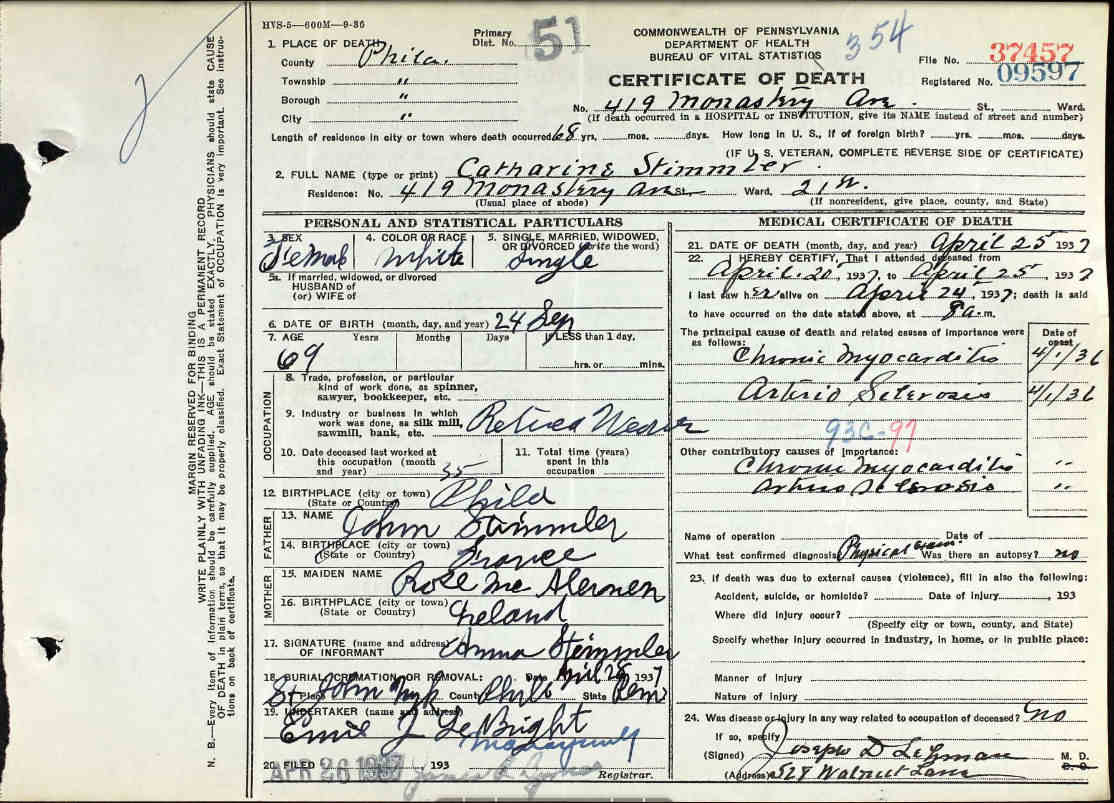 HVS-5—600M—9-36
Primary Dist. No. 51
COMMONWEALTH OF PENNSYLVANIA
DEPARTMENT OF HEALTH
BUREAU OF VITAL STATISTICS
354
CERTIFICATE OF DEATH
File No. 37457
Registered No. 09597
1. PLACE OF DEATH
County Phila.
Township "
Borough "
City "
No. 419 Monastery Ave. St., Ward.
(If death occurred in a HOSPITAL or INSTITUTION, give its NAME instead of street and number)
Length of residence in city or town where death occurred 68 yrs. mos. days. How long in U. S., if of foreign birth? yrs. mos. days.
(IF U. S. VETERAN, COMPLETE REVERSE SIDE OF CERTIFICATE)
2. FULL NAME (type or print) Catharine Stimmler
Residence: No. 419 Monastery Ave St. Ward, 21st.
(Usual place of abode) (If nonresident, give place, county, and State)
PERSONAL AND STATISTICAL PARTICULARS
3. SEX Female
4. COLOR OR RACE White
5. SINGLE, MARRIED, WIDOWED, OR DIVORCED (write the word) Single
5a. If married, widowed, or divorced
HUSBAND of
(or) WIFE of
6. DATE OF BIRTH (month, day, and year) 24 Sep
7. AGE Years Months Days If LESS than 1 day,
69 hrs. or mins.
OCCUPATION
8. Trade, profession, or particular
kind of work done, as spinner,
sawyer, bookkeeper, etc.
9. Industry or business in which
work was done, as silk mill,
sawmill, bank, etc. Retired Weaver
10. Date deceased last worked at
this occupation (month
and year) 35
11. Total time (years)
spent in this
occupation
12. BIRTHPLACE (city or town) Phila
(State or Country)
FATHER
13. NAME John Stimmler
14. BIRTHPLACE (city or town)
(State or Country) France
MOTHER
15. MAIDEN NAME Rose
16. BIRTHPLACE (city or town)
(State or Country) Ireland
17. SIGNATURE (name and address)
OF INFORMANT Anna Stimmler
18. BURIAL, CREMATION OR REMOVAL: Date April 28 1937
Place St John County Phila State Penn
19. UNDERTAKER (name and address)
Emil J LeBright
Manayunk
20. FILED APR 26 1937 193
Registrar.
MEDICAL CERTIFICATE OF DEATH
21. DATE OF DEATH (month, day, and year) April 25 1937
22. I HEREBY CERTIFY, That I attended deceased from
April 20, 1937, to April 25, 1937
I last saw her alive on April 24, 1937; death is said
to have occurred on the date stated above, at 8 a.m.
The principal cause of death and related causes of importance were
as follows:
Date of onset
Chronic Myocarditis 4/1/36
Arterio Sclerosis 4/1/36
93C-97
Other contributory causes of importance:
Chronic Myocarditis "
Arterio Sclerosis "
Name of operation Date of
What test confirmed diagnosis Physical Exam. Was there an autopsy? no
23. If death was due to external causes (violence), fill in also the following:
Accident, suicide, or homicide? Date of injury , 193
Where did injury occur?
(Specify city or town, county, and State)
Specify whether injury occurred in industry, in home, or in public place:
Manner of injury
Nature of injury
24. Was disease or injury in any way related to occupation of deceased? no
If so, specify
(Signed) Joseph D Lehman M. D.
D. O.
(Address) 528 Walnut Lane
MARGIN RESERVED FOR BINDING
WRITE PLAINLY WITH UNFADING INK—THIS IS A PERMANENT RECORD
N. B.—Every item of information should be carefully supplied. AGE should be stated EXACTLY. PHYSICIANS should state CAUSE
OF DEATH in plain terms, so that it may be properly classified. Exact Statement of OCCUPATION is very important. See instruc-
tions on back of certificate.